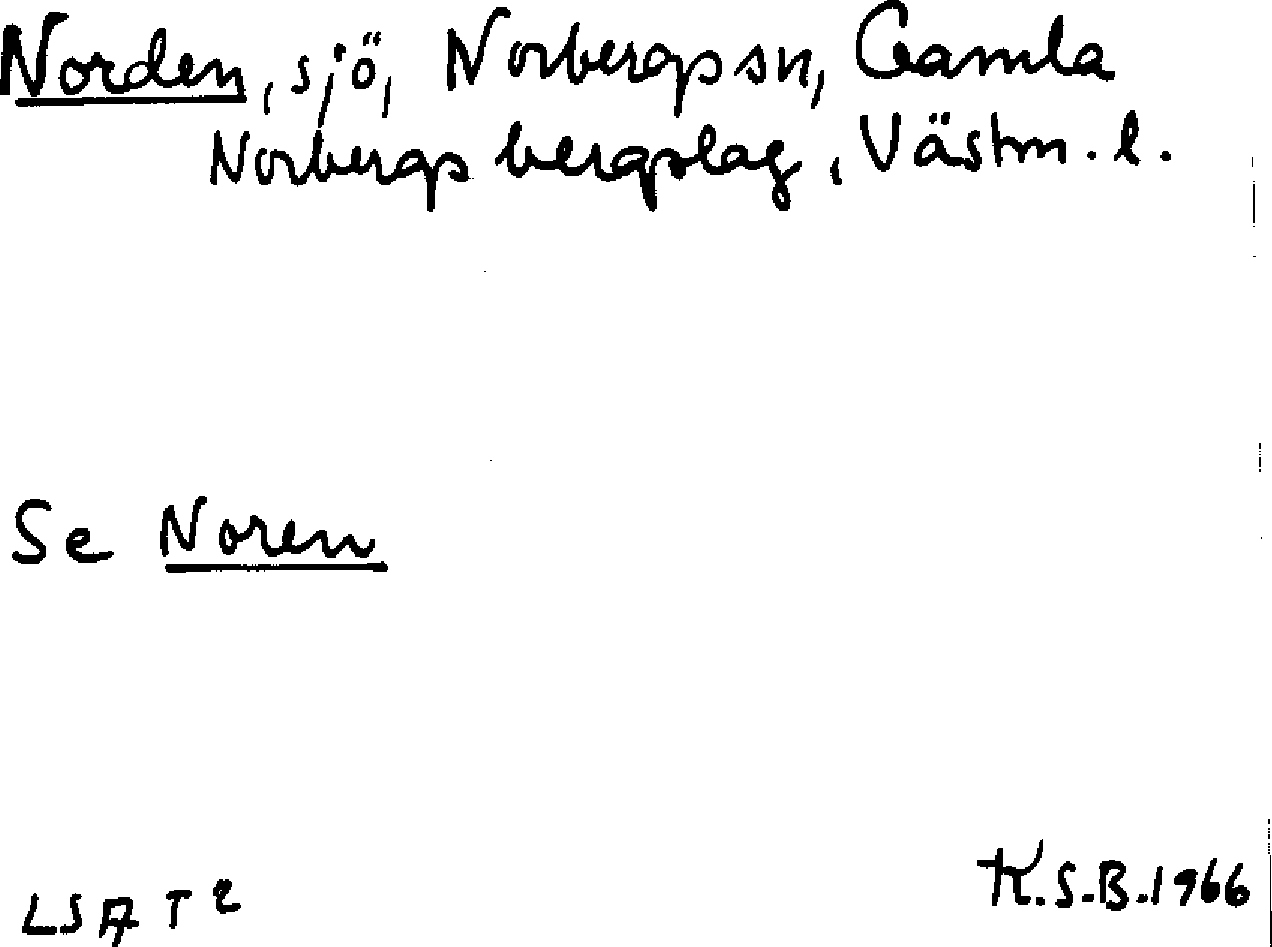 Norden, sjö, Norbergs sn, Gamla
Norbergs bergslag, Västm. l.
Se Noren
LSA T 2
K.S.B. 1966